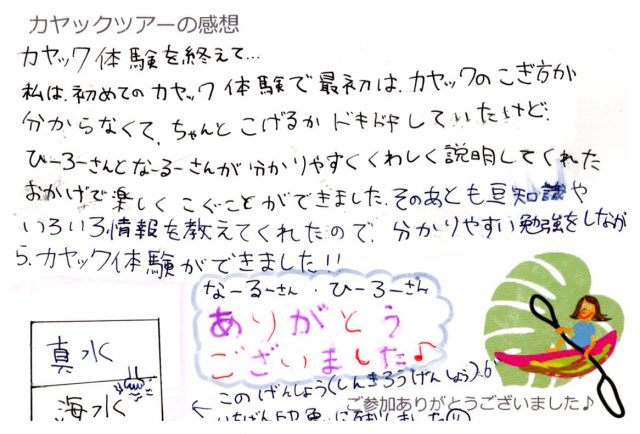 カヤックツアーの感想
カヤック体験を終えて…
私は、初めてのカヤック体験で最初は、カヤックのこぎ方が
分からなくて、ちゃんとこげるかドキドキしていたけど、
ひーろーさんとなーるーさんが分かりやすくくわしく説明してくれた
おかげで楽しくこぐことができました。そのあとも豆知識や
いろいろ情報を教えてくれたので、分かりやすい勉強をしなが
ら、カヤック体験ができました!!
なーるーさん・ひーろーさん
ありがとう
ございました♪
真水
海水
← このげんしょう(しんきろうげんしょう)が
いちばん印象に残りました
ご参加ありがとうございました♪